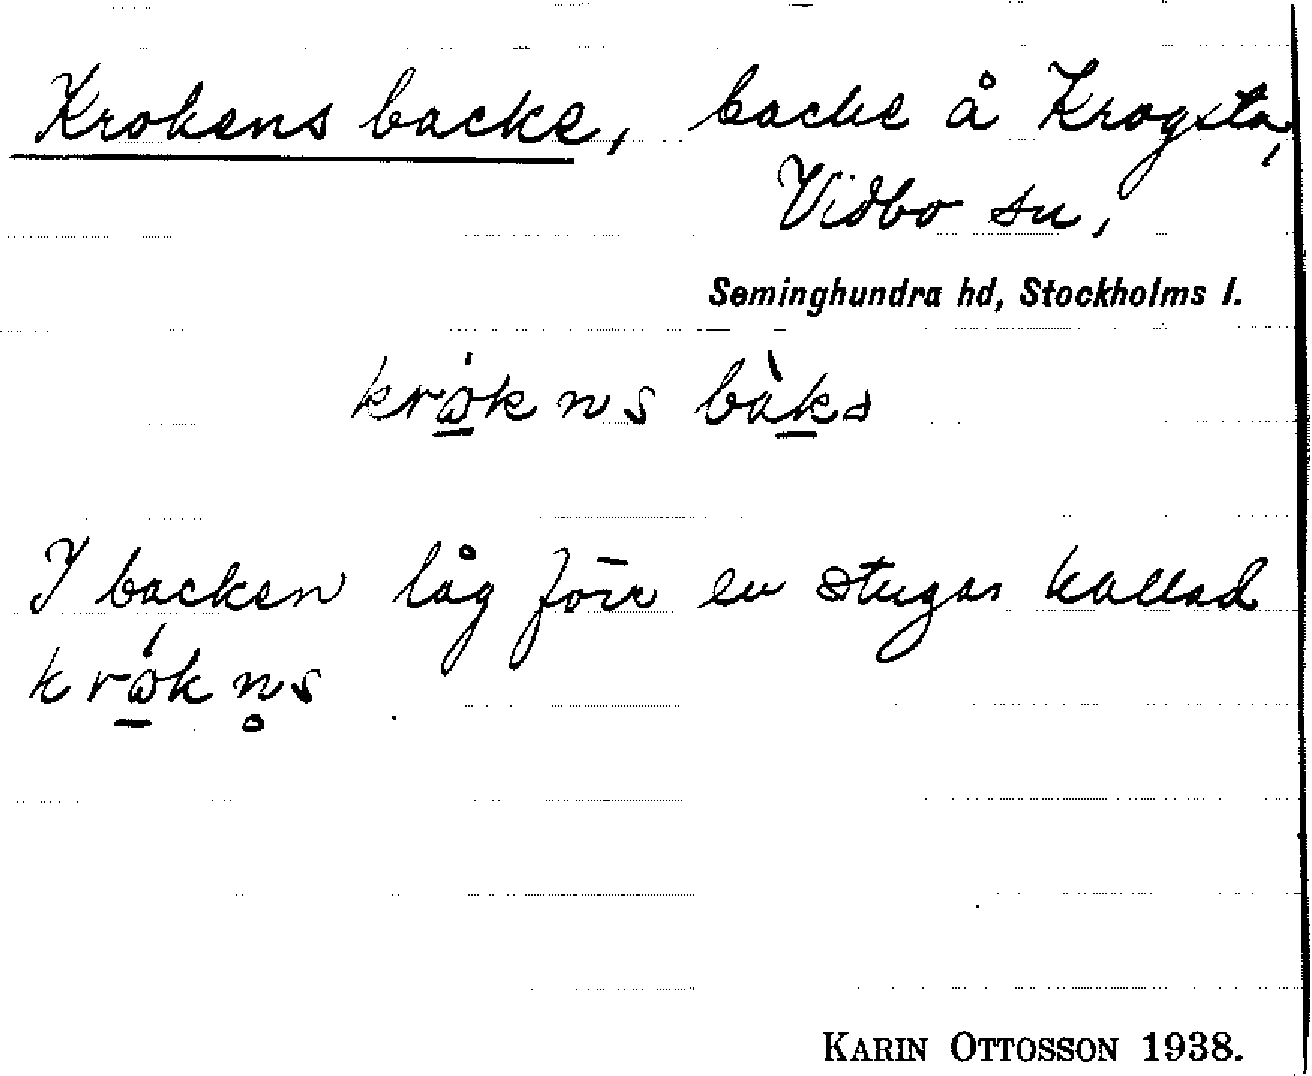 Krokens backe, backe å Krogsta,
Vidbo sn,
Seminghundra hd, Stockholms l.
krωkns bàkə
I backen låg förr en stuga kallad
krωkn̥s
KARIN OTTOSSON 1938.